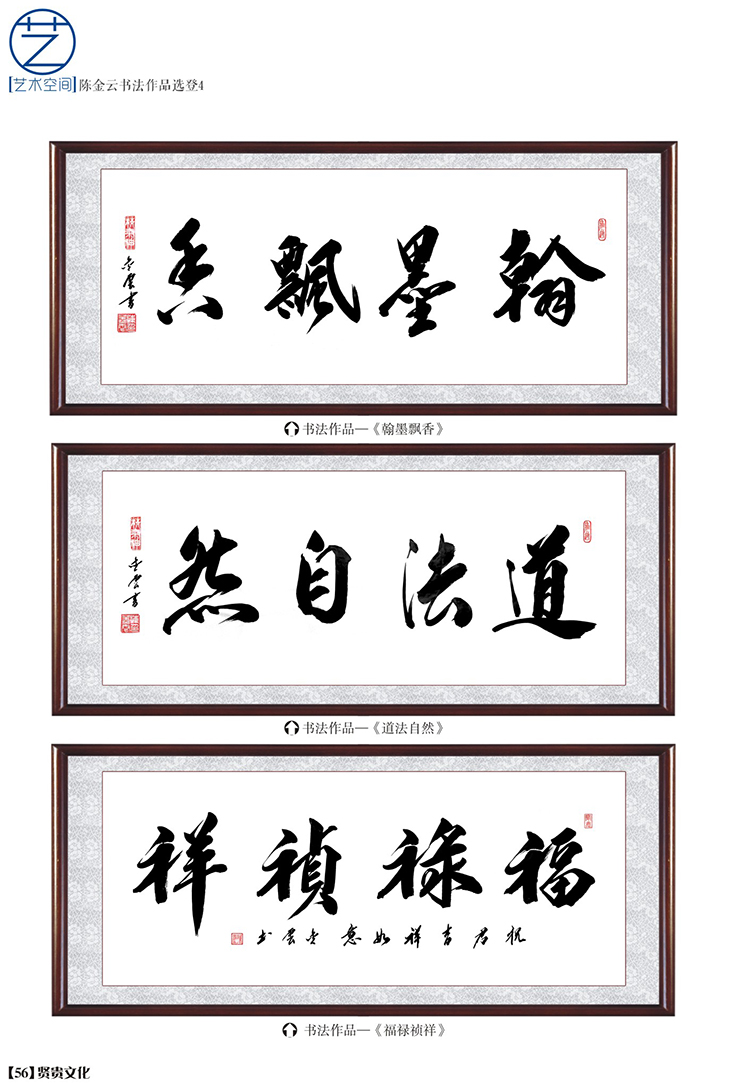 艺
【艺术空间】陈金云书法作品选登4
翰墨飄香
金雲書
书法作品—《翰墨飘香》
道法自然
金雲書
书法作品—《道法自然》
福禄禎祥
祝君吉祥如意金雲书
书法作品—《福禄祯祥》
【56】贤贵文化